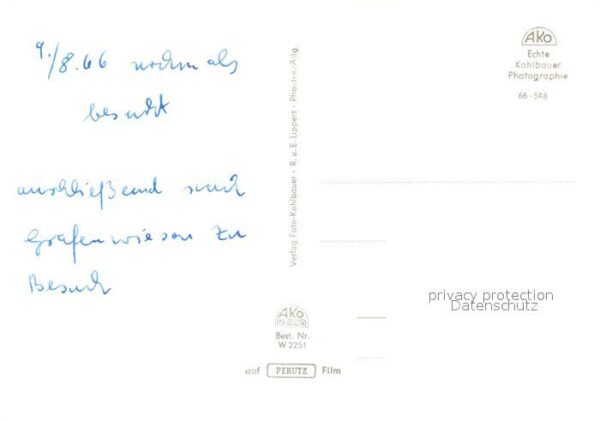 9./8.66 nochmals
besucht
anschließend nach
Grafenwiesen zu
Besuch
Verlag Foto-Kohlbauer - R. u. E. Lippert - Pfronten/Allg.
AKo
Echte
Kohlbauer
Photographie
66-548
privacy protection
Datenschutz
AKo
Best. Nr.
W 2251
auf PERUTZ Film